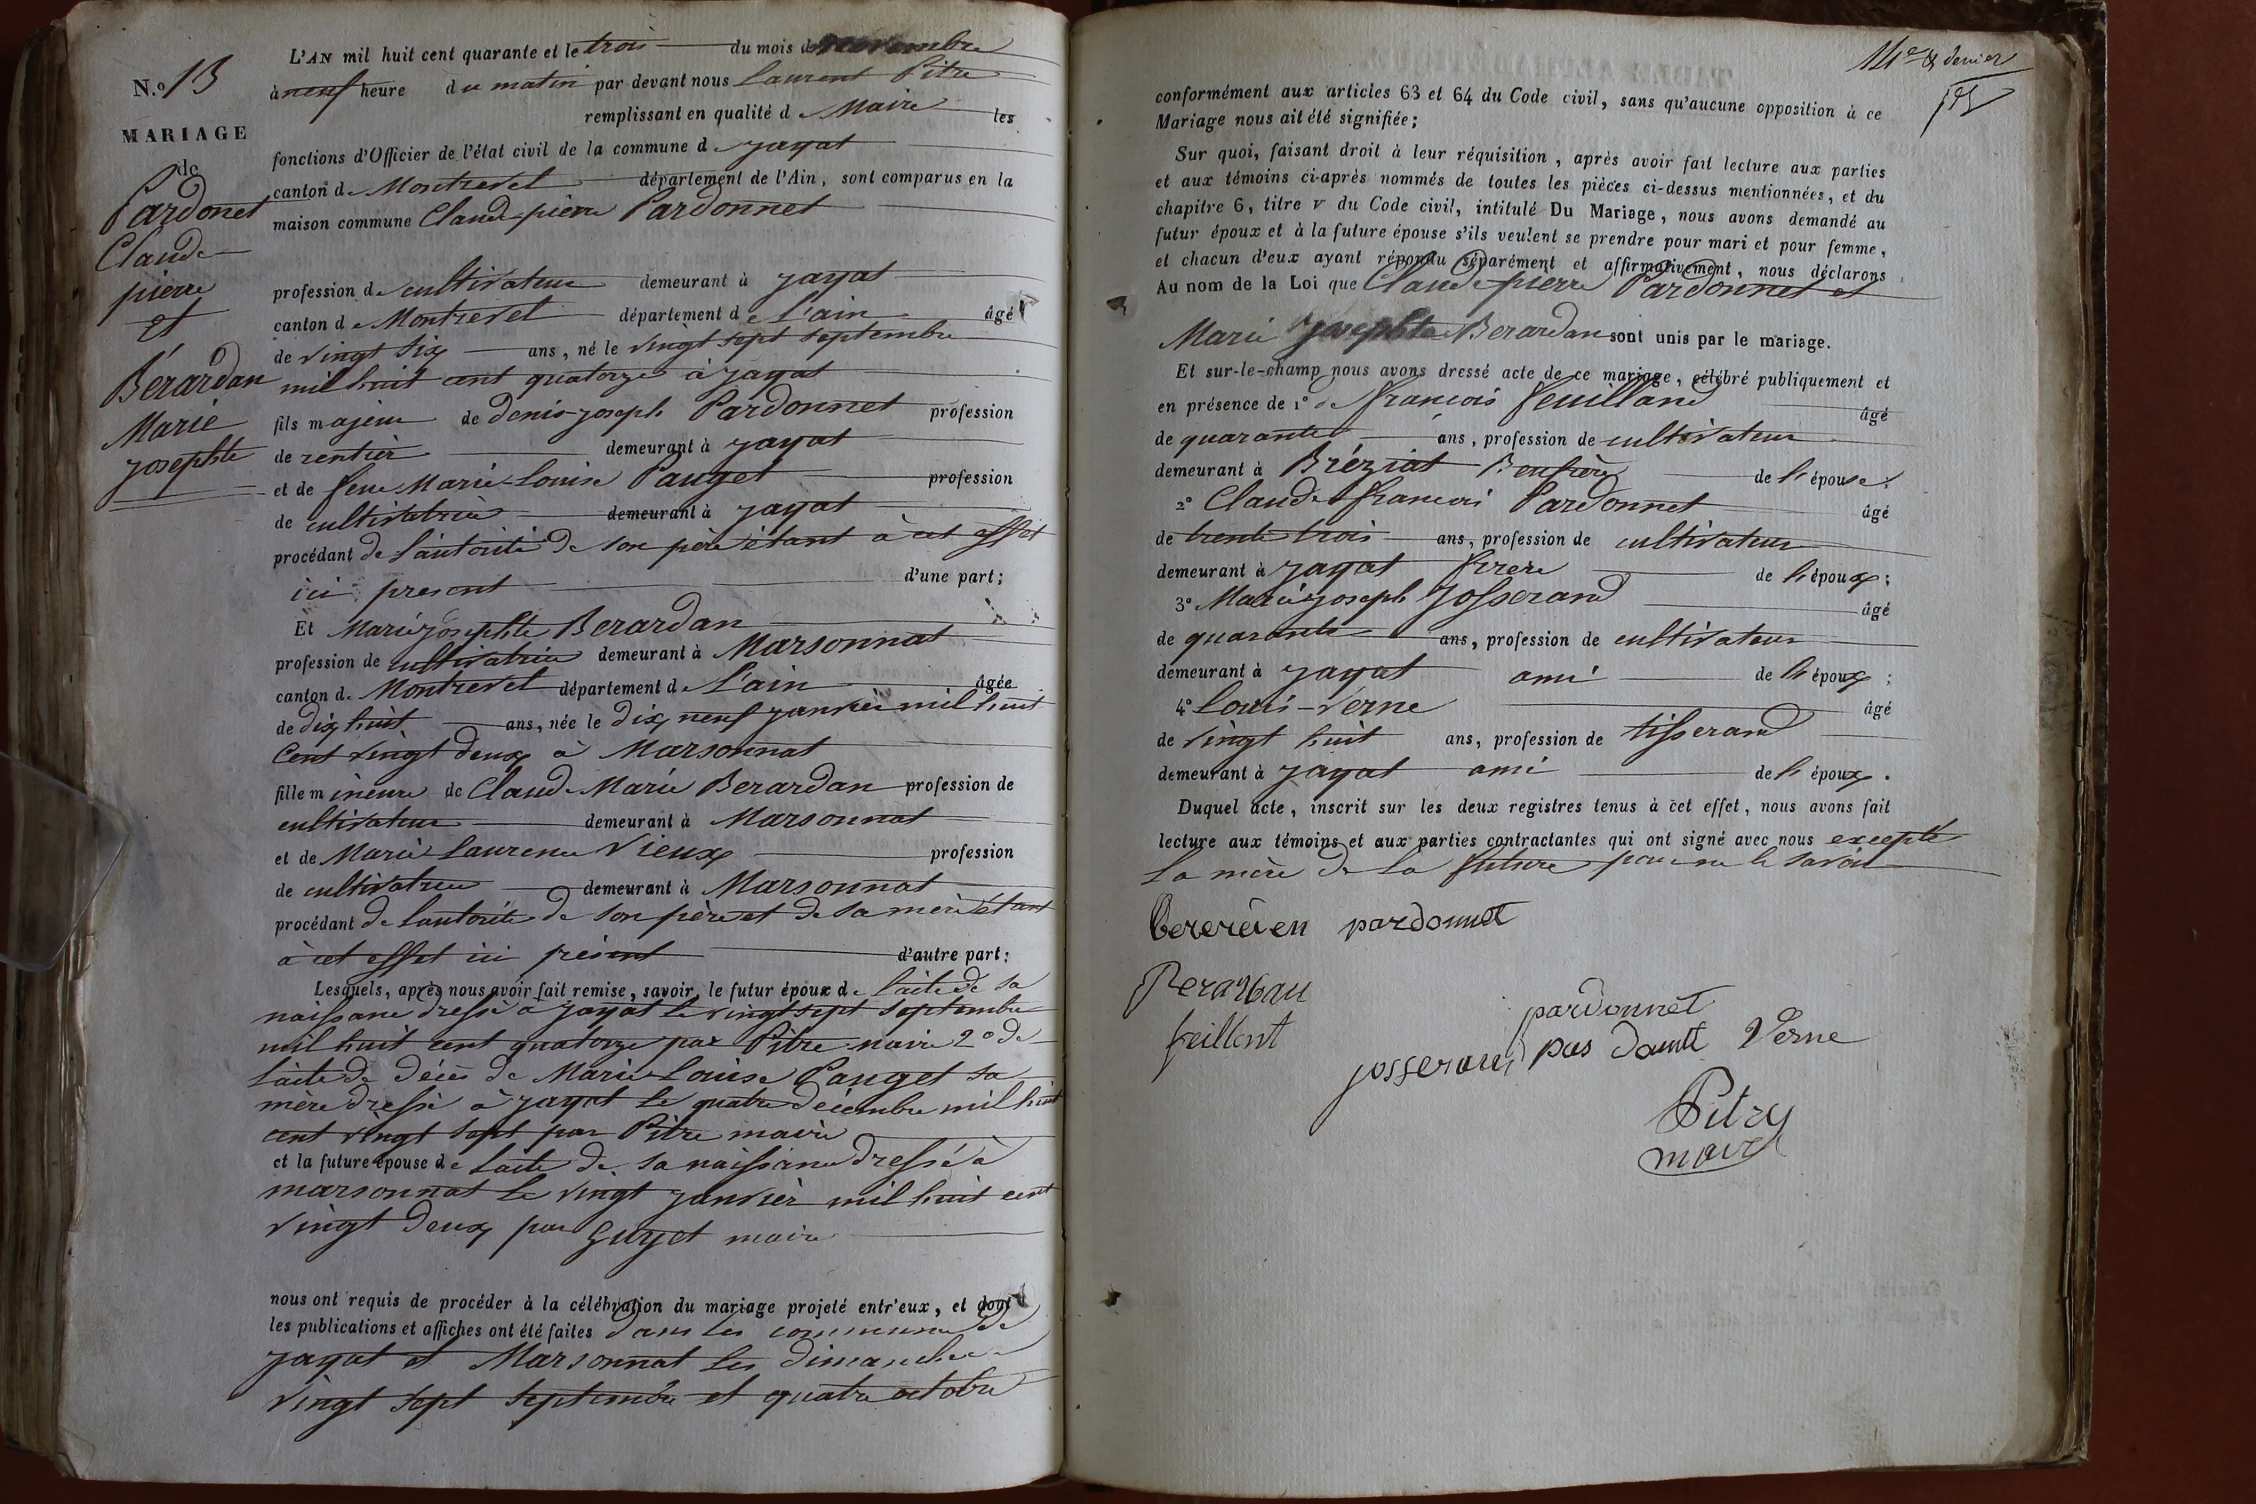 N.º 13
MARIAGE
de
Pardonet
Claude
pierre
et
Bérardan
Marie
josephte
L'AN mil huit cent quarante et le trois du mois de novembre
à neuf heure du matin par devant nous Laurent Pitre
remplissant en qualité de Maire les
fonctions d'Officier de l'état civil de la commune de jayat
canton de Montrevel département de l'Ain, sont comparus en la
maison commune Claude-pierre Pardonnet
profession de cultivateur demeurant à jayat
canton de Montrevel département de l'ain âgé
de vingt six ans, né le vingt sept septembre
mil huit cent quatorze à jayat
fils majeur de denis-joseph Pardonnet profession
de rentier demeurant à jayat
et de feue Marie-Louise Pauget profession
de cultivatrice demeurant à jayat
procédant de l'autorité de son père étant à cet effet
ici present d'une part;
Et Marie josephte Berardan
profession de cultivatrice demeurant à Marsonnat
canton de Montrevel département de L'ain âgée
de dix huit ans, née le dix neuf janvier mil huit
cent vingt deux à Marsonnat
fille mineure de Claude Marie Berardan profession de
cultivateur demeurant à Marsonnat
et de Marie Laurence Vieux profession
de cultivatrice demeurant à Marsonnat
procédant de l'autorité de son père et de sa mère étant
à cet effet ici présent d'autre part:
Lesquels, après nous avoir fait remise, savoir, le futur époux de l'acte de sa
naissance dressé à jayat le vingt sept septembre
mil huit cent quatorze par Pitre maire 2º de
l'acte de décès de Marie Louise Pauget sa
mère dressé à jayat le quatre décembre mil huit
cent vingt sept par Pitre maire
et la future épouse de l'acte de sa naissance dressé à
marsonnat le vingt janvier mil huit cent
vingt deux par Guyet maire
nous ont requis de procéder à la célébration du mariage projeté entr'eux, et dont
les publications et affiches ont été faites dans les communes de
jayat et Marsonnat les dimanches
vingt sept septembre et quatre octobre
14e & dernier
conformément aux articles 63 et 64 du Code civil, sans qu'aucune opposition à ce
Mariage nous ait été signifiée;
Sur quoi, faisant droit à leur réquisition, après avoir fait lecture aux parties
et aux témoins ci-après nommés de toutes les pièces ci-dessus mentionnées, et du
chapitre 6, titre V du Code civil, intitulé Du Mariage, nous avons demandé au
futur époux et à la future épouse s'ils veulent se prendre pour mari et pour femme,
et chacun d'eux ayant répondu séparément et affirmativement, nous déclarons
Au nom de la Loi que Claude-pierre Pardonnet et
Marie Josephte Berardan sont unis par le mariage.
Et sur-le-champ nous avons dressé acte de ce mariage, célébré publiquement et
en présence de 1º de françois feuilland âgé
de quarante ans, profession de cultivateur
demeurant à Bréziat Beufrère de l'épouse;
2º Claude françois Pardonnet âgé
de trente trois ans, profession de cultivateur
demeurant à jayat frere de l'époux;
3º Marie joseph Josserand âgé
de quarante ans, profession de cultivateur
demeurant à jayat ami de l'époux;
4º Louis-Verne âgé
de vingt huit ans, profession de tisserand
demeurant à jayat ami de l'époux.
Duquel acte, inscrit sur les deux registres tenus à cet effet, nous avons fait
lecture aux témoins et aux parties contractantes qui ont signé avec nous excepté
la mère de la future pour ne le savoir
pardonnet
feillent
pardonnet
josserand
Verne
Pitre
maire